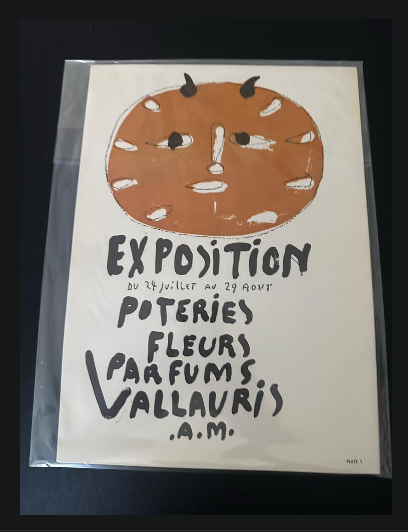 EXPOSITION
DU 24 JUILLET AU 29 AOUT
POTERIES
FLEURS
PARFUMS
VALLAURIS
.A.M.
PLATE 1